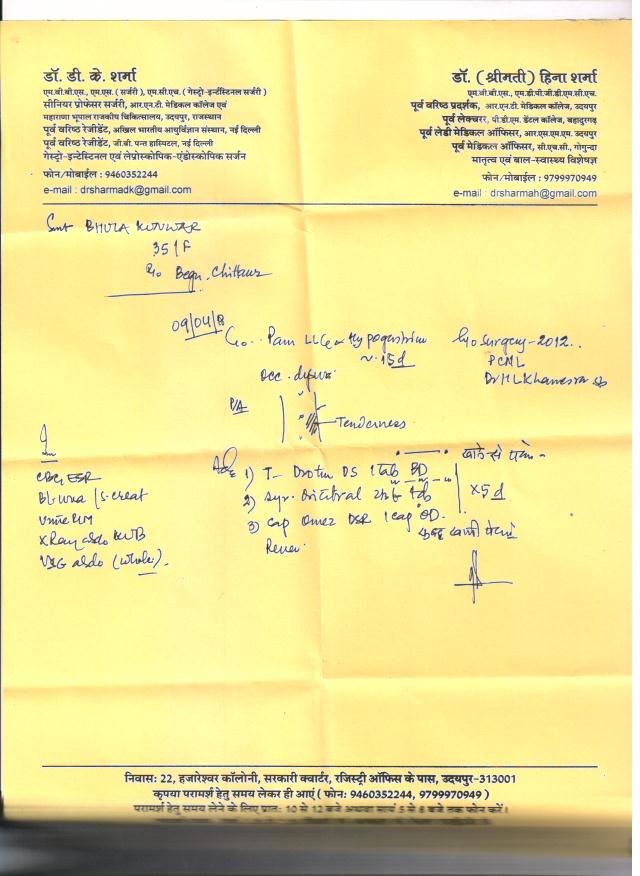 डॉ. डी. के. शर्मा
एम.बी.बी.एस., एम.एस. (सर्जरी), एम.सी.एच. (गेस्ट्रो-इन्टेंस्टिनल सर्जरी)
सीनियर प्रोफेसर सर्जरी, आर.एन.टी. मेडिकल कॉलेज एवं
महाराणा भूपाल राजकीय चिकित्सालय, उदयपुर, राजस्थान
पूर्व वरिष्ठ रेजीडेंट, अखिल भारतीय आयुर्विज्ञान संस्थान, नई दिल्ली
पूर्व वरिष्ठ रेजीडेंट, जी.बी. पन्त हास्पिटल, नई दिल्ली
गेस्ट्रो-इन्टेस्टिनल एवं लेप्रोस्कोपिक-एंडोस्कोपिक सर्जन
फोन/मोबाईल : 9460352244
e-mail : drsharmadk@gmail.com
डॉ. (श्रीमती) हिना शर्मा
एम.बी.बी.एस., एम.डी.पी.जी.डी.एम.सी.एच.
पूर्व वरिष्ठ प्रदर्शक, आर.एन.टी. मेडिकल कॉलेज, उदयपुर
पूर्व लेक्चरर, पी.डी.एम. डेंटल कॉलेज, बहादुरगढ़
पूर्व लेडी मेडिकल ऑफिसर, आर.एस.एम.एम. उदयपुर
पूर्व मेडिकल ऑफिसर, सी.एच.सी., गोगुन्दा
मातृत्व एवं बाल-स्वास्थ्य विशेषज्ञ
फोन/मोबाईल : 9799970949
e-mail : drsharmah@gmail.com
Smt BHULA KUNWAR
35/F
R/o Begu. Chittaur
09/04/18
C/o.. Pain LLQ & Hypogastrium
~ 15d
Occ.
H/o Surgery-2012..
PCNL
Dr HL Khamesra
P/A
Tenderness
CBC, ESR
Bl. Urea / S. creat
Urine RM
X Ray abdo KUB
USG abdo (whole).
Adv
1) T- Drotin DS 1 tab BD
खाने से पहले -
2) Syp. 2tsf tds
x5d
3) Cap Omez DSR 1 cap OD.
खाली पेट
Review
निवास: 22, हजारेश्वर कॉलोनी, सरकारी क्वार्टर, रजिस्ट्री ऑफिस के पास, उदयपुर-313001
कृपया परामर्श हेतु समय लेकर ही आएं ( फोन: 9460352244, 9799970949 )
परामर्श हेतु समय लेने के लिए प्रात: 10 से 12 बजे अथवा सायं 5 से 8 बजे तक फोन करें।